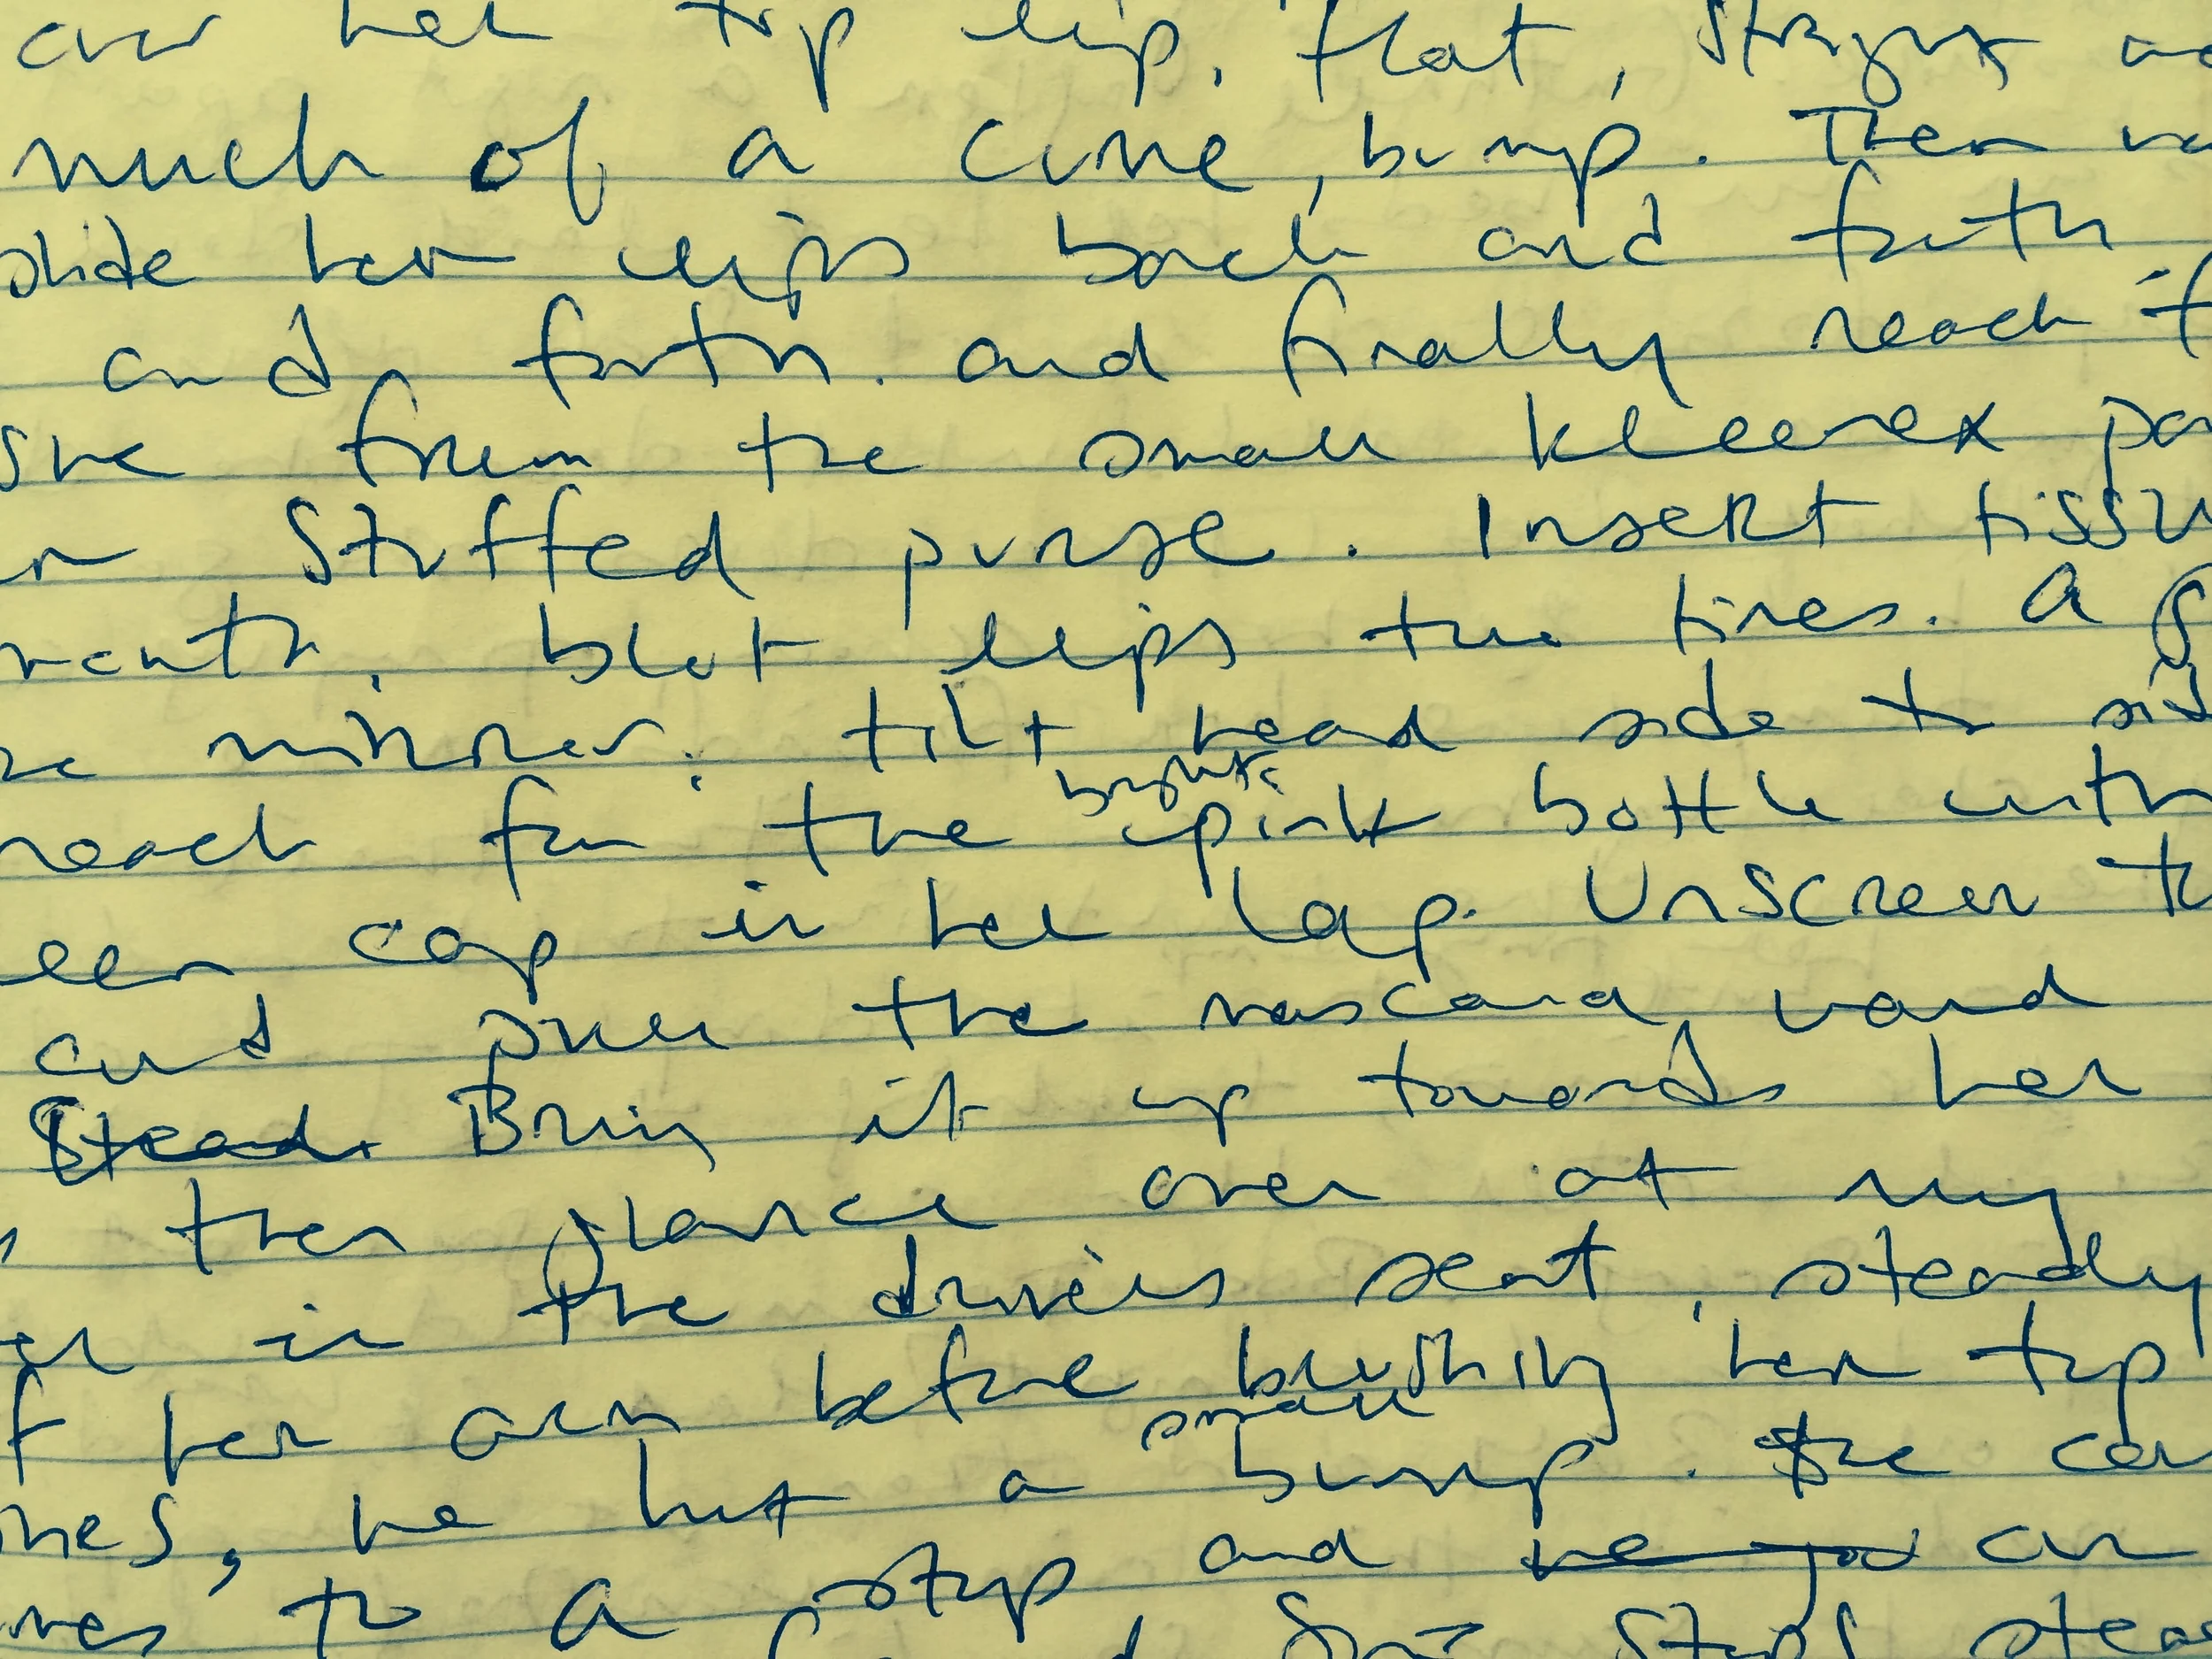 over her top lip, flat, straight
much of a curve, bump. Then
slide her lips back and forth,
and forth. and finally reach
from the small kleenex
stuffed purse. Insert tissu
mouth, blot lips two times. A
mirror; tilt head side to sid
bright
reach for the pink bottle with
een cap in her lap. Unscrew
and pull the mascara wand
Stead. Bring it up towards her
then glance over at my
in the drivers seat, steady
her arm before brushing her top
small
hes, he hit a bump. The car
mes to a stop and he god
stops